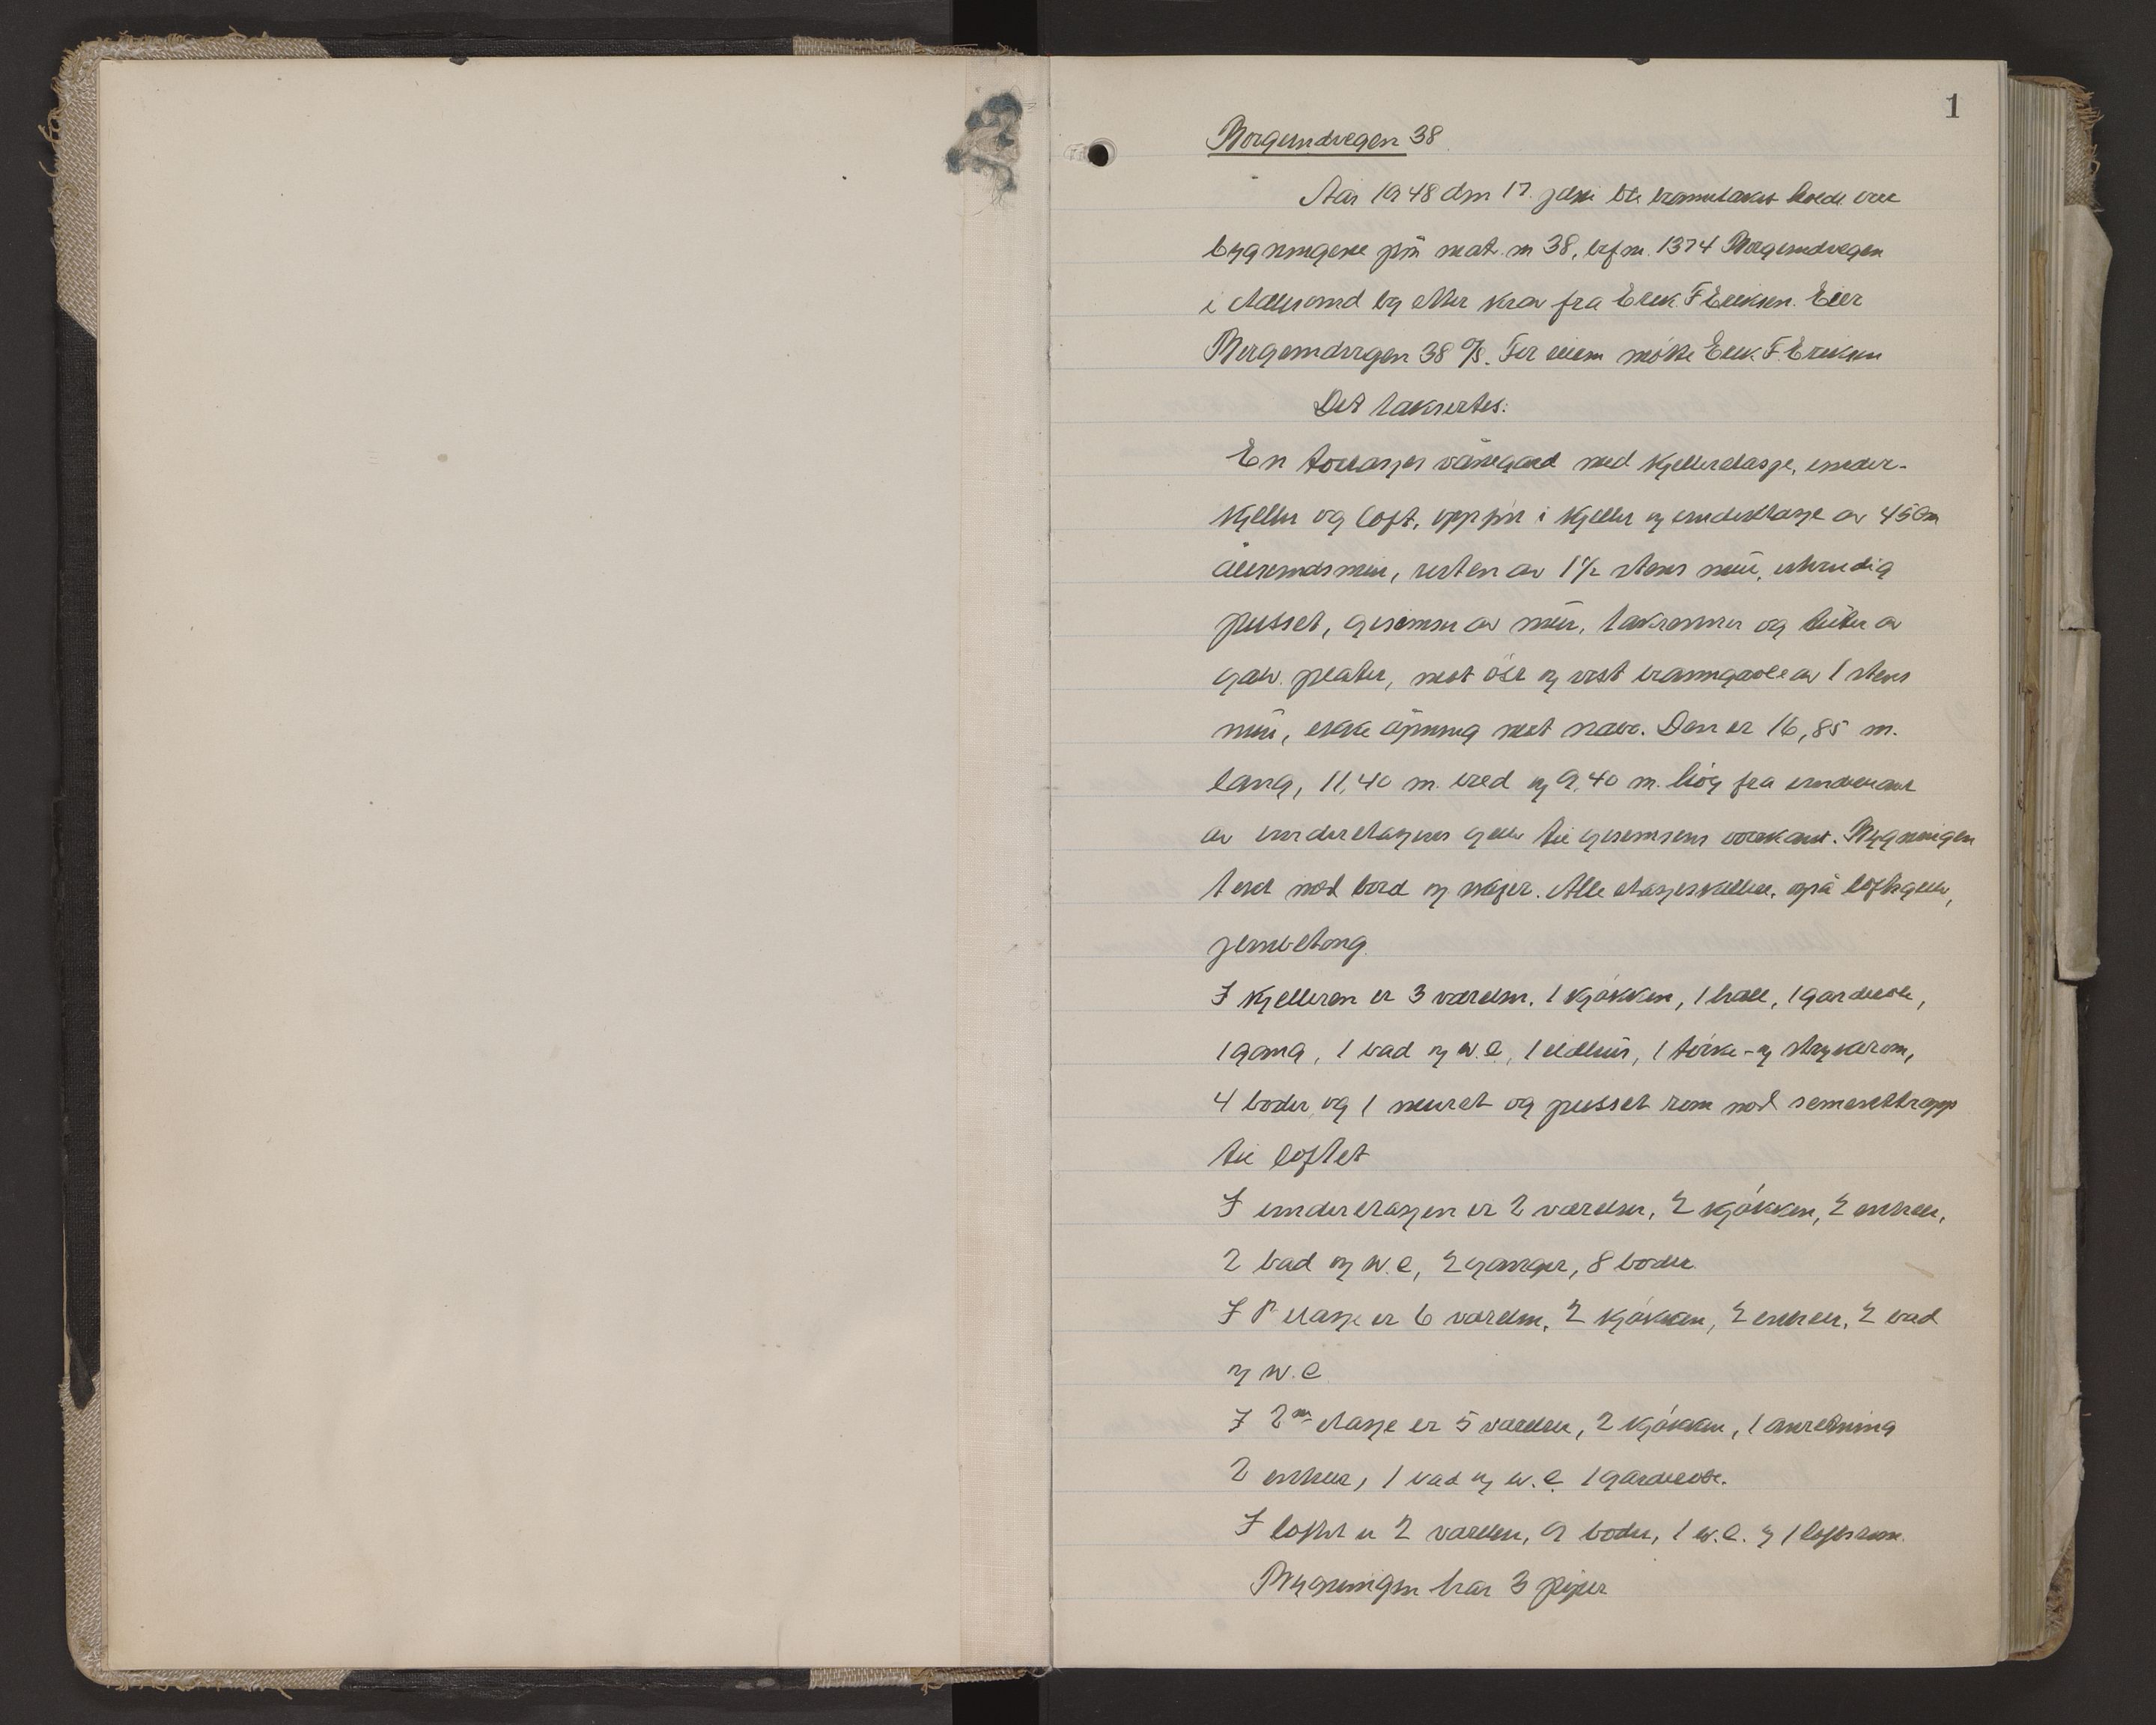 1
Borgundvegen 38.
Aar 1948 den 17. juni ble branntakst holdt over
bygningene på matr. nr 38, brf. nr. 1374 Borgundvegen
i Aalesund by etter krav fra Erik F Eriksen. Eier
Borgundvegen 38 A/S. For eieren møtte Erik F. Eriksen
Det taksertes:
En toetasjes vånegard med kjelleretasje, under-
kjeller og loft, oppført i kjeller og underetasje av 45 cm
ålesundsmur, resten av 1 1/2 stens mur, utvendig
pusset, gesimser av mur, takrenner og luter av
galv. plater, mot øst og vest branngavle av 1 stens
mur, ikke åpning mot nabo. Den er 16,85 m.
lang, 11,40 m. bred og 9,40 m. høg fra underkant
av underetasjens gulv til gesimsens overkant. Bygningen
tekt med bord og skifer. Alle etasjeskiller, også loftsgulv,
jernbetong.
I kjelleren er 3 værelser, 1 kjøkken, 1 hall, 1 garderobe,
1 gang, 1 bad og w.c., 1 eldhus, 1 tørke- og strykerom,
4 boder, og 1 muret og pusset rom med sementtrapp
til loftet
I underetasjen er 2 værelser, 2 kjøkken, 2 entreer,
2 bad og w.c, 2 ganger, 8 boder
I 1ste etasje er 6 værelser, 2 kjøkken, 2 entreer, 2 bad
og w.c.
I 2en etasje er 5 værelser, 2 kjøkken, 1 anretning
2 entreer, 1 bad og w.c. 1 garderobe.
I loftet er 2 værelser, 9 boder, 1 w.c. og 1 loftsrom.
Bygningen har 3 piper